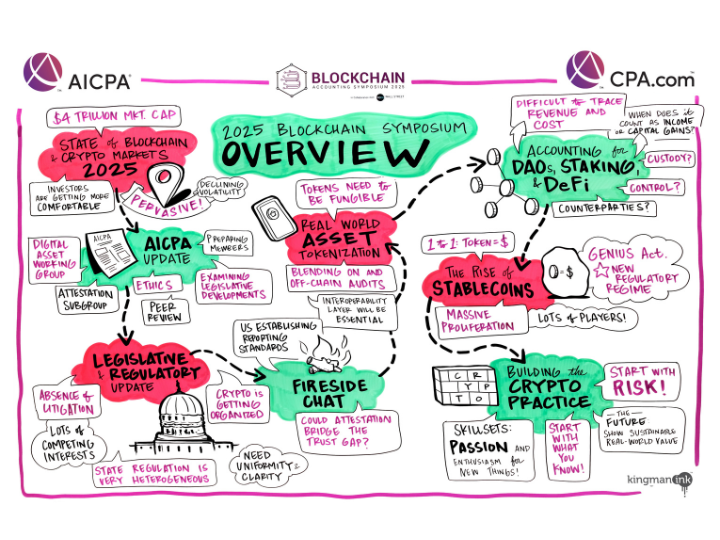 AICPA
BLOCKCHAIN
ACCOUNTING SYMPOSIUM 2025
CPA.com
2025 BLOCKCHAIN SYMPOSIUM
OVERVIEW
$4 TRILLION MKT. CAP
STATE of BLOCKCHAIN
& CRYPTO MARKETS
2025
INVESTORS
ARE GETTING MORE
COMFORTABLE
PERVASIVE!
DECLINING
VOLATILITY
AICPA
AICPA
UPDATE
DIGITAL
ASSET
WORKING
GROUP
ATTESTATION
SUBGROUP
ETHICS
PEER
REVIEW
PREPARING
MEMBERS
EXAMINING
LEGISLATIVE
DEVELOPMENTS
LEGISLATIVE
& REGULATORY
UPDATE
ABSENCE of
LITIGATION
LOTS of
COMPETING
INTERESTS
STATE REGULATION IS
VERY HETEROGENEOUS
CRYPTO IS
GETTING
ORGANIZED
NEED
UNIFORMITY &
CLARITY
US ESTABLISHING
REPORTING
STANDARDS
FIRESIDE
CHAT
COULD ATTESTATION
BRIDGE THE
TRUST GAP?
TOKENS NEED TO
BE FUNGIBLE
REAL WORLD
ASSET
TOKENIZATION
BLENDING ON AND
OFF-CHAIN AUDITS
INTEROPERABILITY
LAYER WILL BE
ESSENTIAL
DIFFICULT to TRACE
REVENUE AND
COST
WHEN DOES it
COUNT AS INCOME
or CAPITAL GAINS?
ACCOUNTING for
DAOs, STAKING,
& DeFi
CUSTODY?
CONTROL?
COUNTERPARTIES?
1 to 1: TOKEN = $
THE RISE of
STABLECOINS
= $
GENIUS Act.
NEW
REGULATORY
REGIME
MASSIVE
PROLIFERATION
LOTS of PLAYERS!
BUILDING the
CRYPTO
PRACTICE
C R
Y P
T O
START WITH
RISK!
SKILLSETS:
PASSION AND
ENTHUSIASM for
NEW THINGS!
START
WITH
WHAT
YOU
KNOW!
THE
FUTURE:
SHOW SUSTAINABLE
REAL-WORLD VALUE
kingman ink